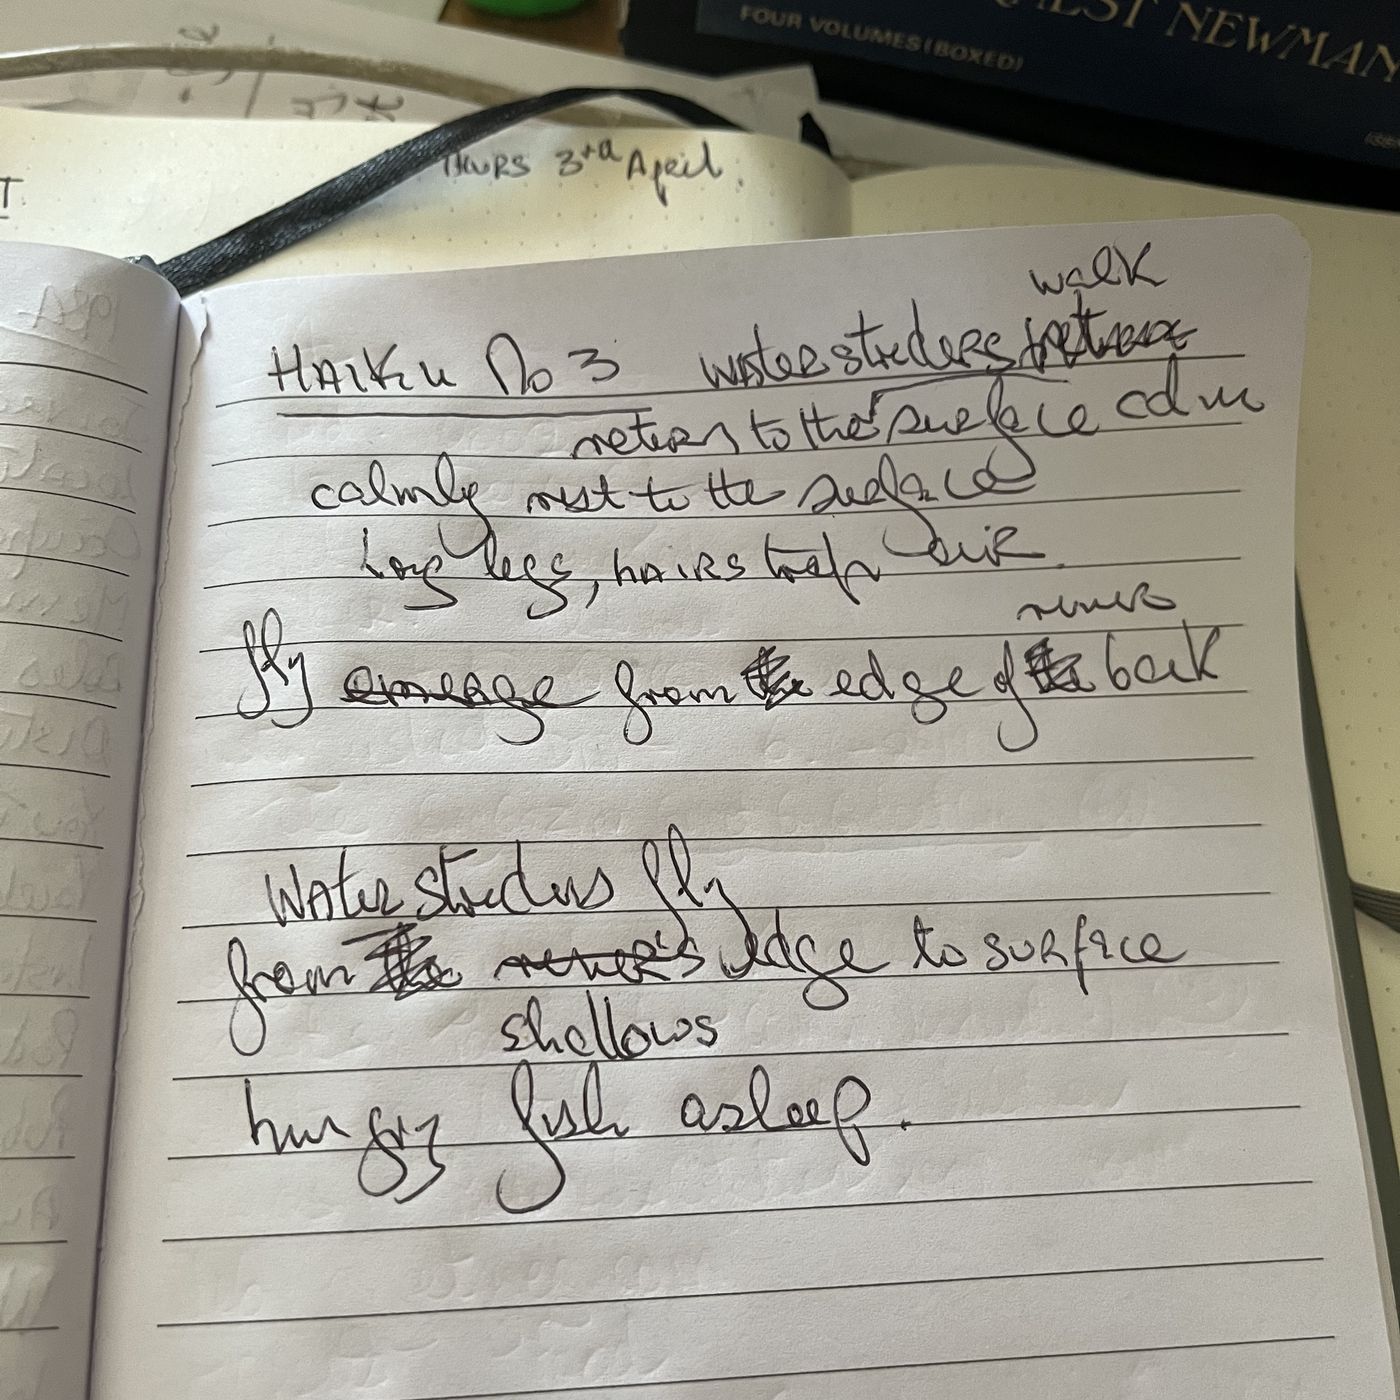 QUEST NEWMAN
FOUR VOLUMES (BOXED)
THURS 3rd April.
walk
HAIKU No 3 water striders
return to the surface calm
calmly rest to the surface
Long legs, hairs trap air.
rivers
fly emerge from the edge of the bank
Water striders fly
from the river's edge to surface
shallows
hungry fish asleep.